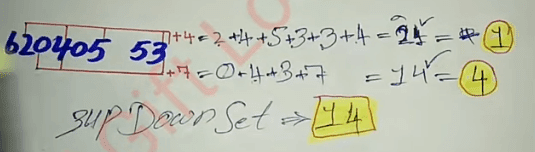 620405 53 +4=2+4+5+3+3+4=21=1
+7=0+4+3+7 =14=4
3up Down Set ⇒ 14
Gift Lo